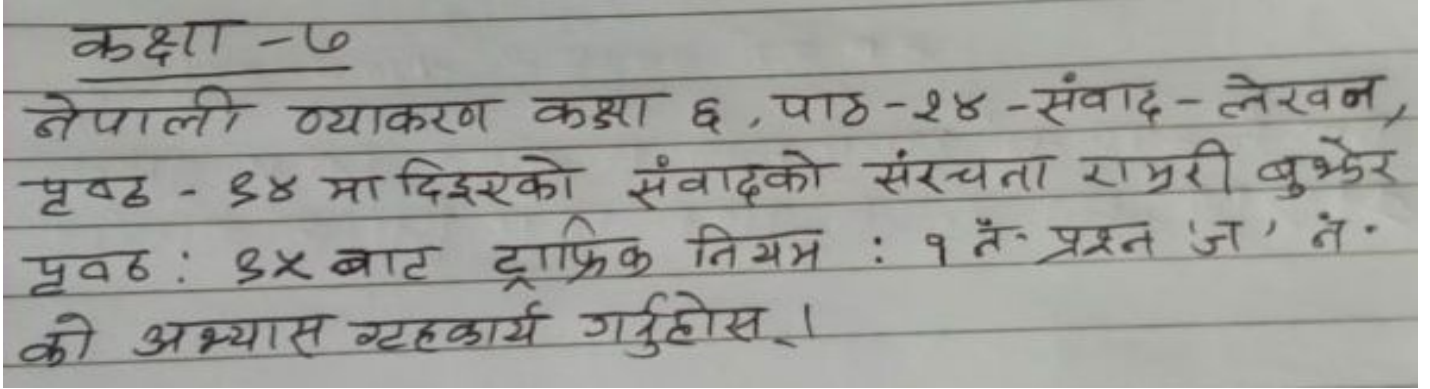 कक्षा - ७
नेपाली व्याकरण कक्षा ६, पाठ - १४ - संवाद - लेखन,
पृष्ठ - ९४ मा दिइएको संवादको संरचना राम्ररी बुझेर
पृष्ठ : ९५ बाट ट्राफिक नियम : १ नं. प्रश्न 'ज' नं.
को अभ्यास गृहकार्य गर्नुहोस् ।